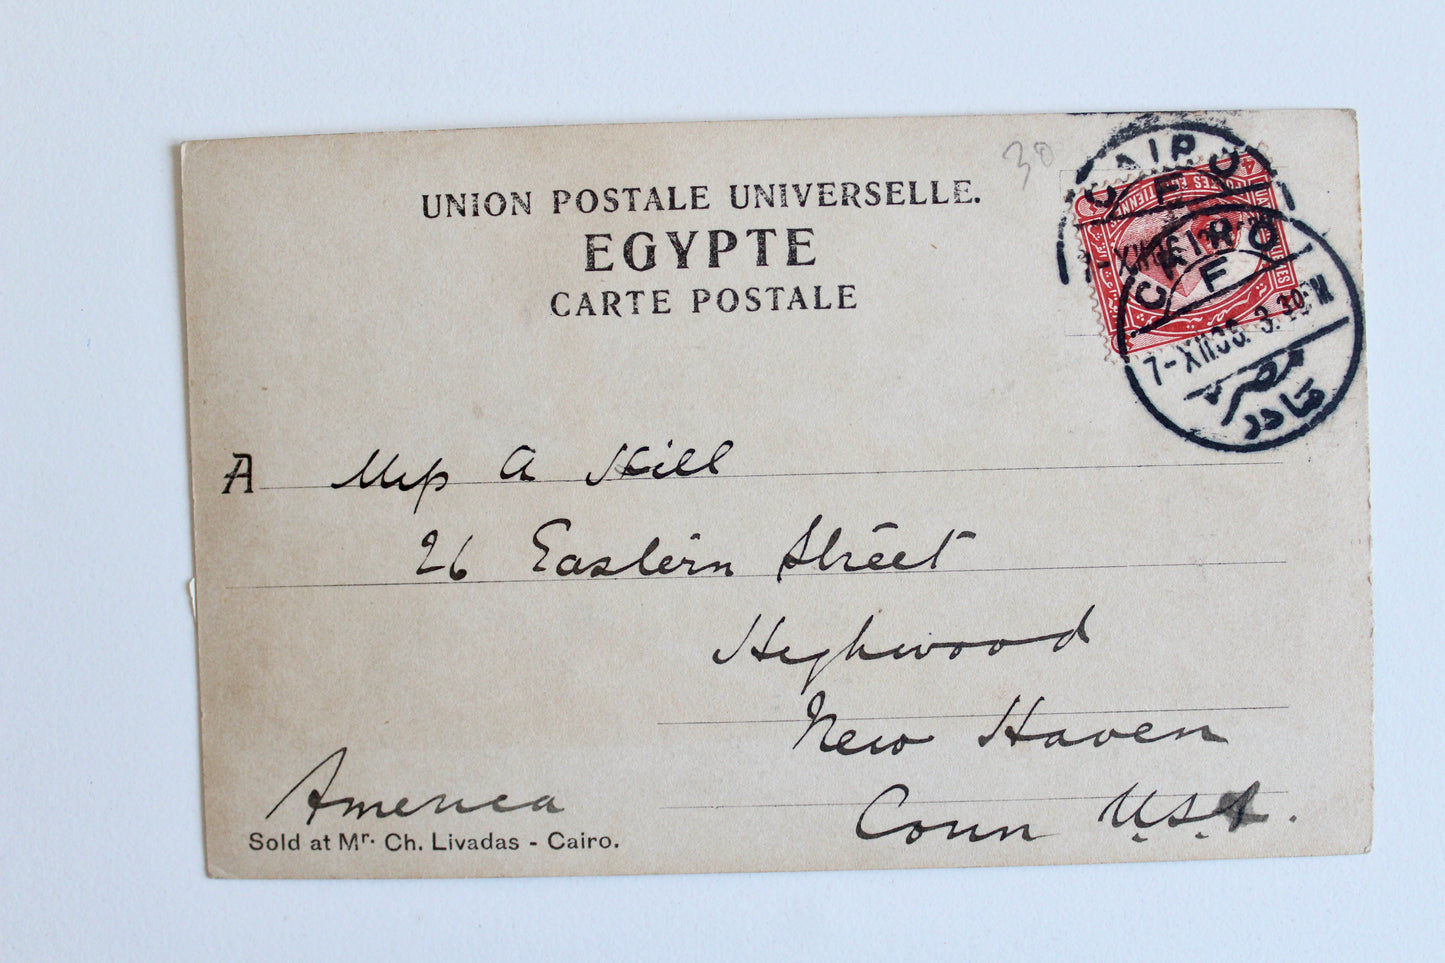 30
UNION POSTALE UNIVERSELLE.
EGYPTE
CARTE POSTALE
CAIRO
F
CAIRO
F
7-XII 06. 3.30 PM
مصر
صادر
A Miss A Hill
26 Eastern Street
Highwood
New Haven
Conn U.S.A.
America
Sold at Mr. Ch. Livadas - Cairo.